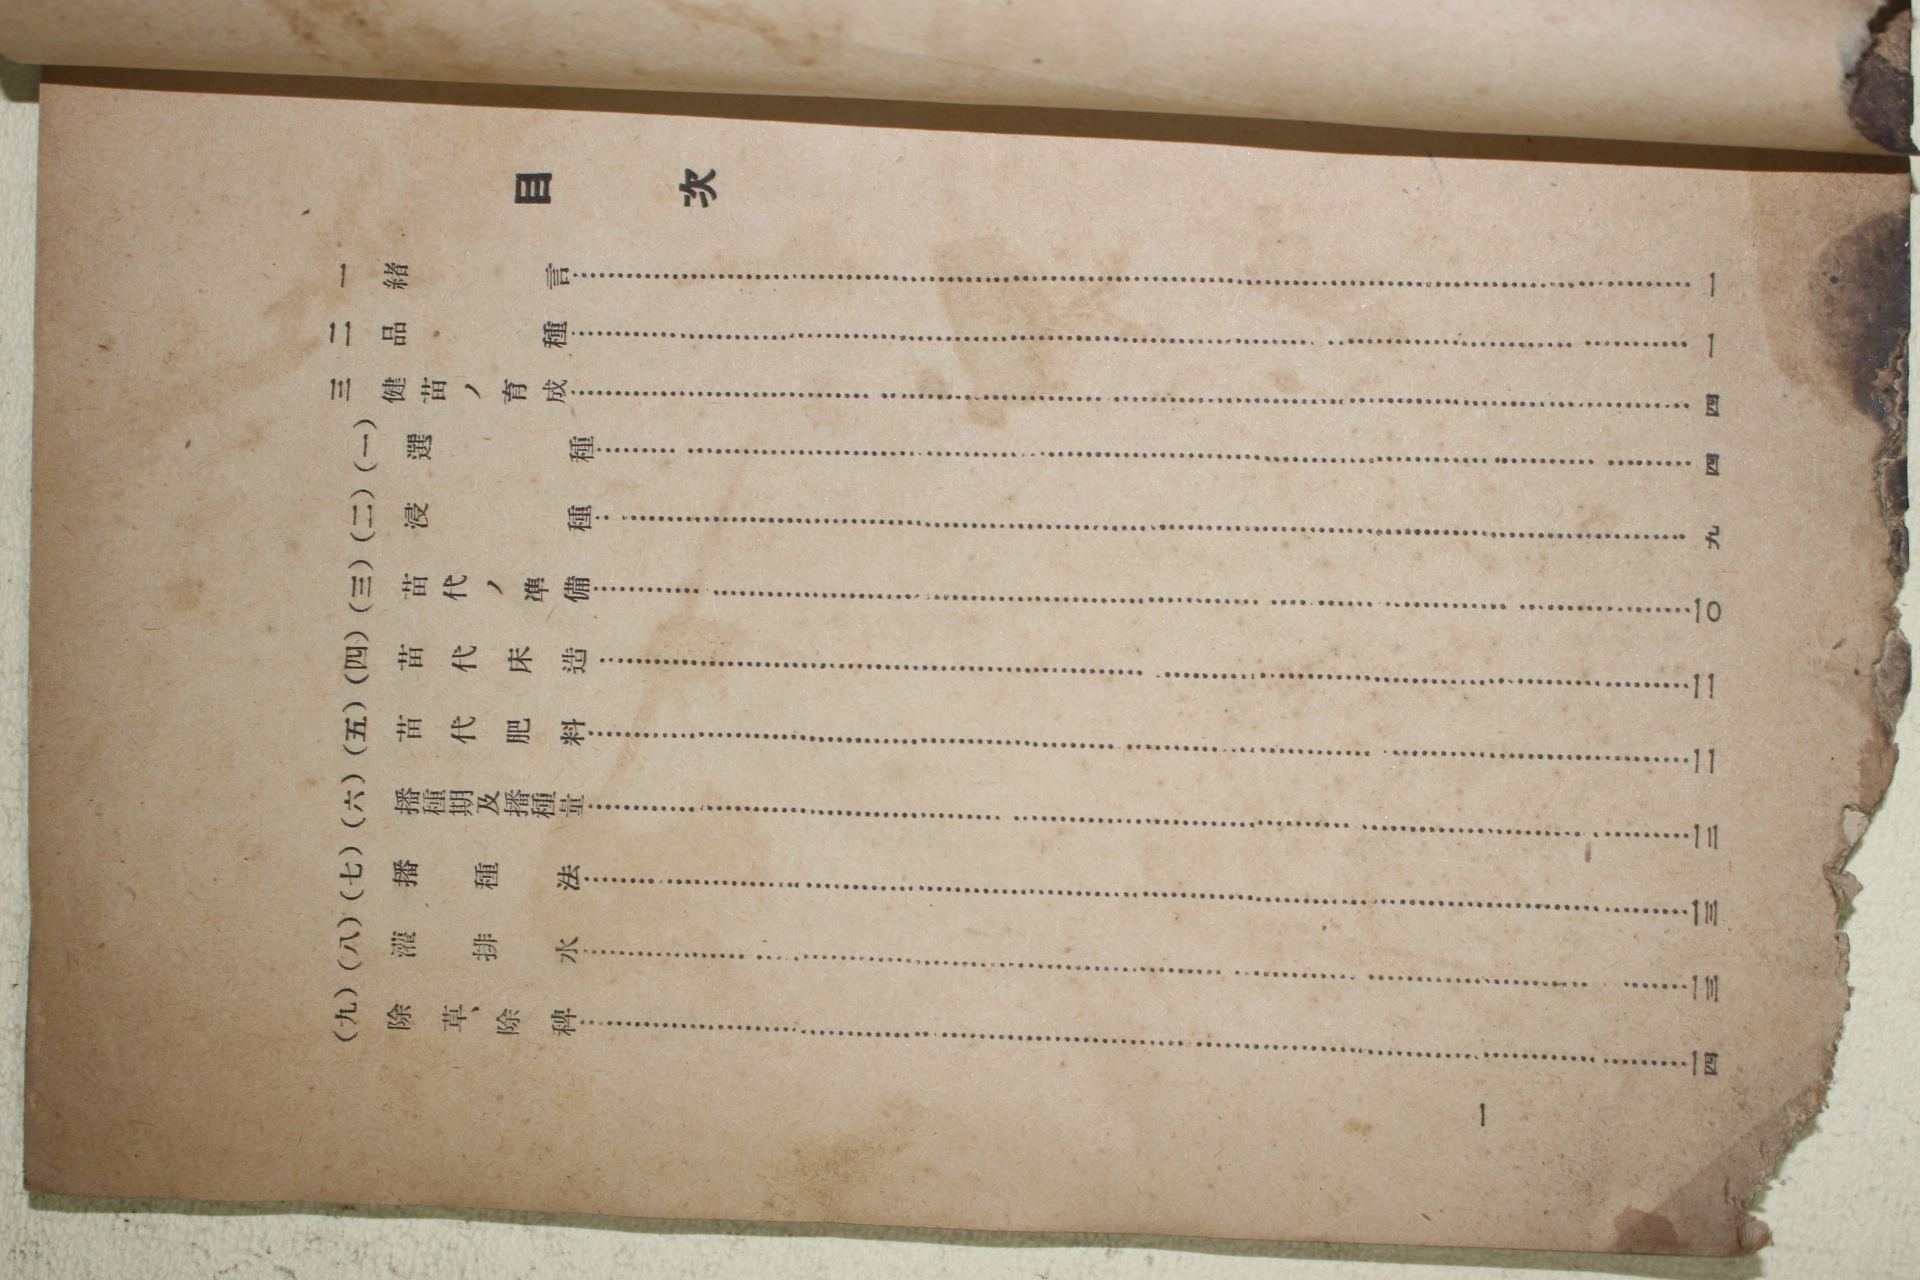 目次
一 緒言……一
二 品種……一
三 健苗ノ育成……四
(一) 選種……四
(二) 浸種……九
(三) 苗代ノ準備……一〇
(四) 苗代床造……一一
(五) 苗代肥料……一一
(六) 播種期及播種量……一二
(七) 播種法……一三
(八) 灌排水……一三
(九) 除草、除稗……一四
一